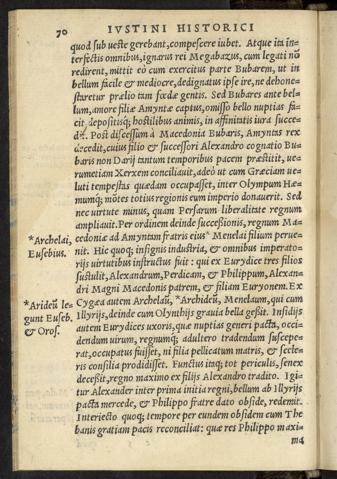 70 IVSTINI HISTORICI
quod sub ueste gerebant, compescere iubet. Atque ita in=
terfectis omnibus, ignarus rei Megabazus, cum legati nō
redirent, mittit eò cum exercitus parte Bubarem, ut in
bellum facile & mediocre, dedignatus ipse ire, ne dehone=
staretur prælio tam fœdæ gentis. Sed Bubares ante bel=
lum, amore filiæ Amyntæ captus, omisso bello nuptias fa=
cit, depositisq; hostilibus animis, in affinitatis iura succe=
dit. Post discessum à Macedonia Bubaris, Amyntas rex
decedit, cuius filio & successori Alexandro cognatio Bu=
baris non Darij tantum temporibus pacem præstitit, ue=
rumetiam Xerxem conciliauit, adeò ut cum Græciam ue=
luti tempestas quædam occupasset, inter Olympum Hæ=
mumq; montes totius regionis eum imperio donauerit. Sed
nec uirtute minus, quàm Persarum liberalitate regnum
ampliauit. Per ordinem deinde successionis, regnum Ma=
*Archelai, Eusebius.
cedoniæ ad Amyntam fratris eius* Menelai filium perue=
nit. Hic quoq; insignis industria, & omnibus imperato=
rijs uirtutibus instructus fuit: qui ex Eurydice tres filios
sustulit, Alexandrum, Perdicam, & Philippum, Alexan=
dri Magni Macedonis patrem, & filiam Euryonem. Ex
*Arideū le=
gunt Euseb.
& Oros.
Cygæa autem Archelaū, *Archideū, Menelaum, qui cum
Illyrijs, deinde cum Olynthijs grauia bella gessit. Insidijs
autem Eurydices uxoris, quæ nuptias generi pacta, occi=
dendum uirum, regnumq; adultero tradendum suscepe=
rat, occupatus fuisset, ni filia pellicatum matris, & scele=
ris consilia prodidisset. Functus itaq; tot periculis, senex
decessit, regno maximo ex filijs Alexandro tradito. Igi=
tur Alexander inter prima initia regni, bellum ab Illyrijs
pacta mercede, & Philippo fratre dato obside, redemit.
Interiecto quoq; tempore per eundem obsidem cum The
banis gratiam pacis reconciliat: quæ res Philippo maxi=
ma